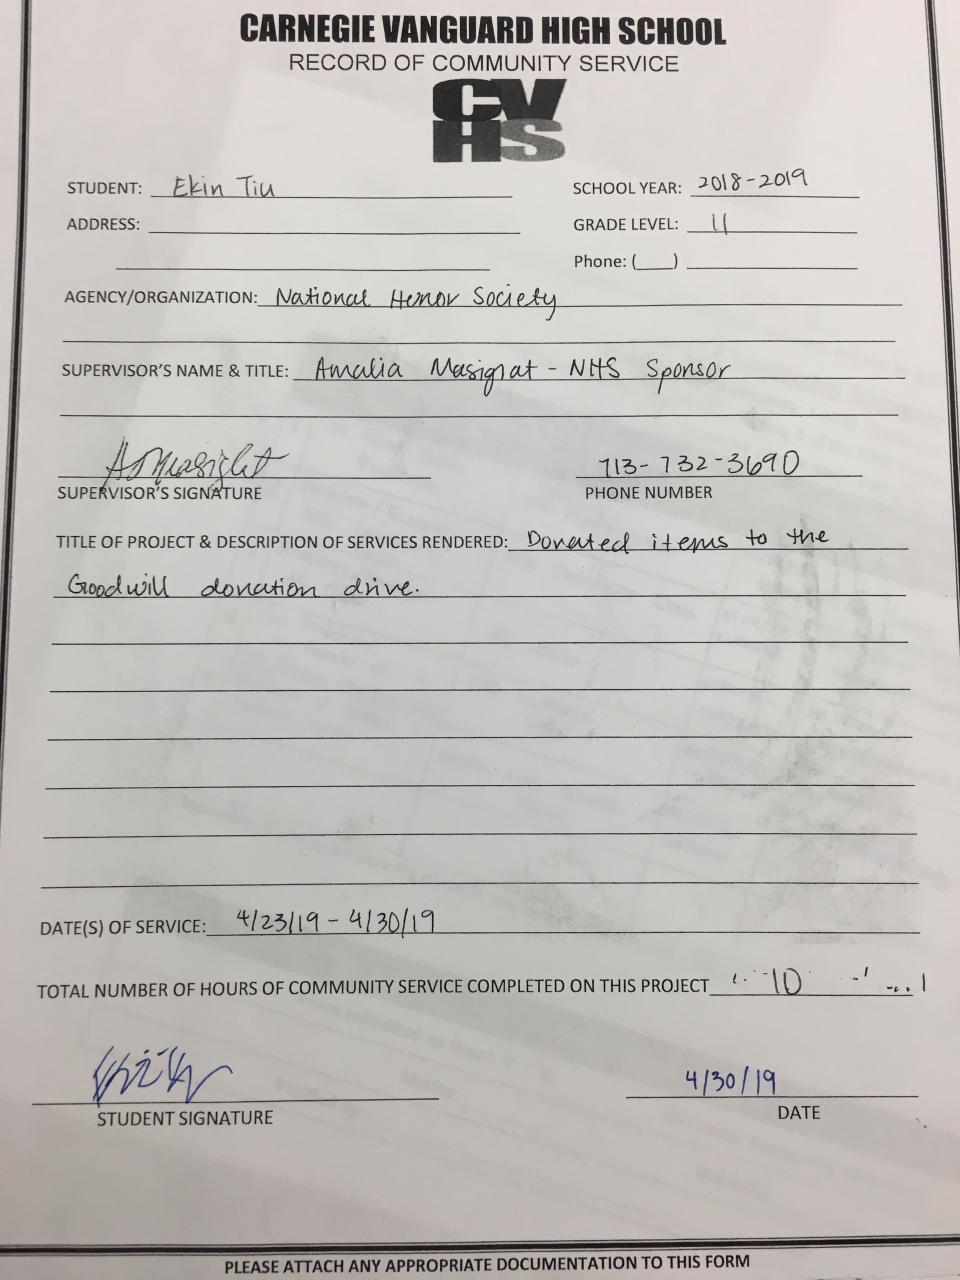 CARNEGIE VANGUARD HIGH SCHOOL
RECORD OF COMMUNITY SERVICE
CV
HS
STUDENT: Ekin Tiu SCHOOL YEAR: 2018-2019
ADDRESS: GRADE LEVEL: 11
Phone: ( )
AGENCY/ORGANIZATION: National Honor Society
SUPERVISOR'S NAME & TITLE: Amalia Masignat - NHS Sponsor
713-732-3690
SUPERVISOR'S SIGNATURE PHONE NUMBER
TITLE OF PROJECT & DESCRIPTION OF SERVICES RENDERED: Donated items to the
Goodwill donation drive.
DATE(S) OF SERVICE: 4/23/19 - 4/30/19
TOTAL NUMBER OF HOURS OF COMMUNITY SERVICE COMPLETED ON THIS PROJECT 10
4/30/19
STUDENT SIGNATURE DATE
PLEASE ATTACH ANY APPROPRIATE DOCUMENTATION TO THIS FORM